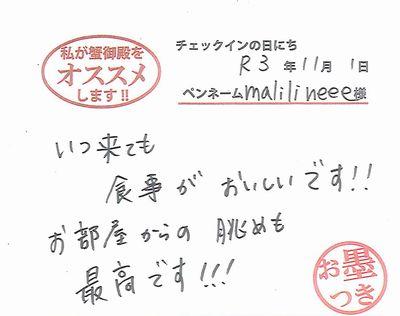 私が蟹御殿を
オススメ
します!!
チェックインの日にち
R3年11月1日
ペンネームmalilineee様
いつ来ても
食事がおいしいです!!
お部屋からの眺めも
最高です!!!
お墨
つき